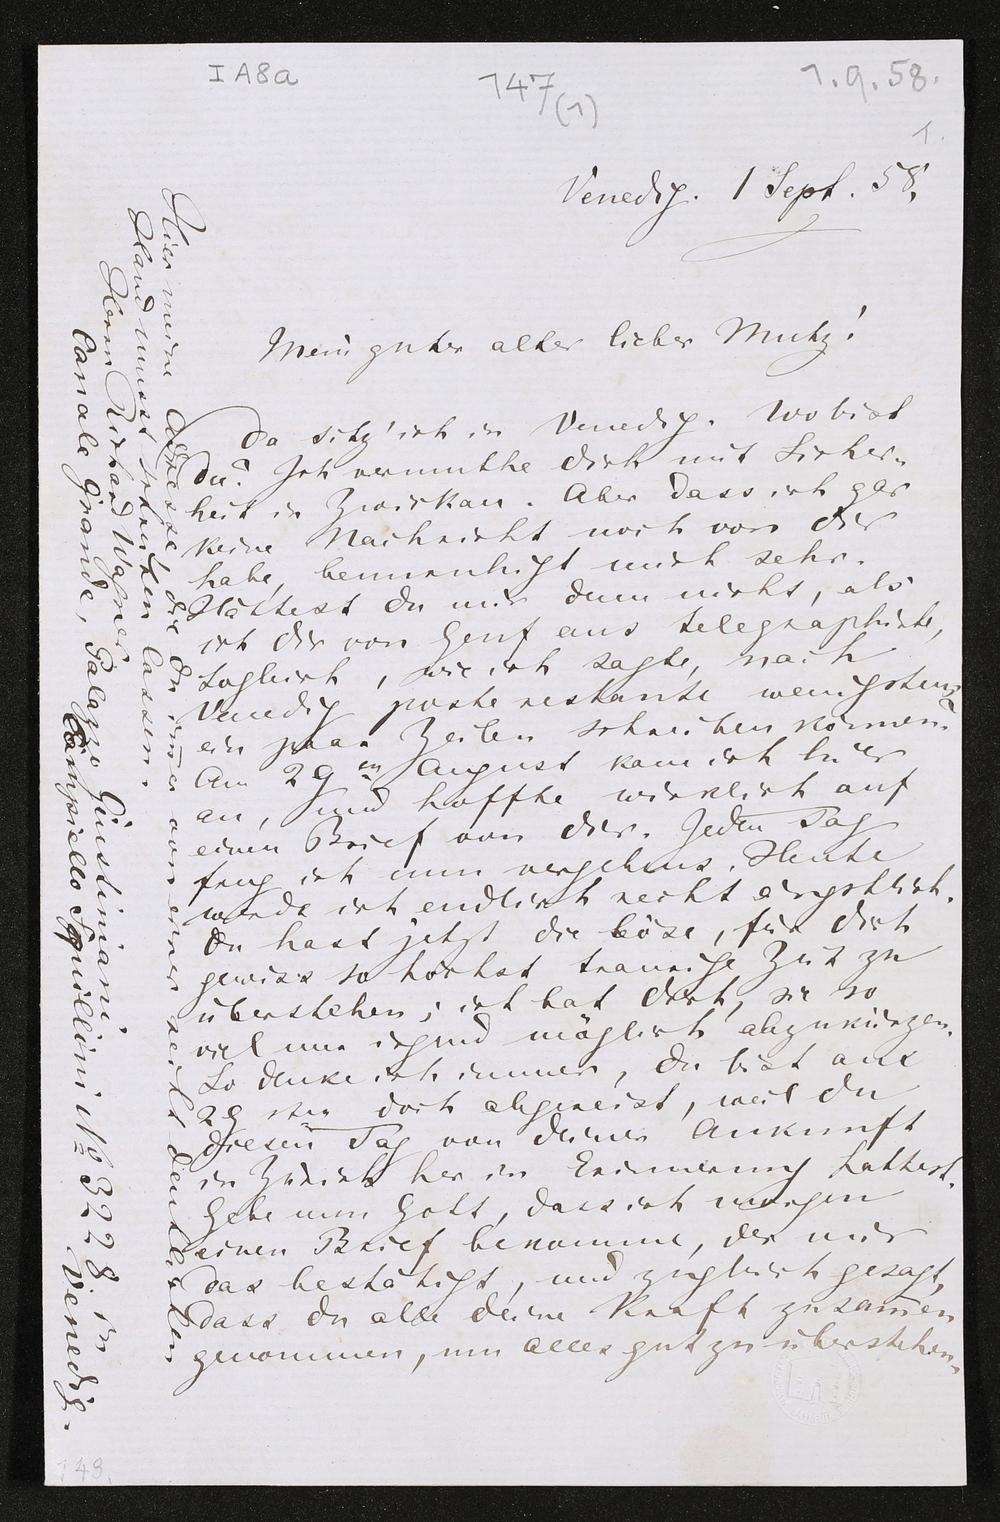 I A8a
147 (1)
1.9.58.
1.
Venedig. 1 Sept. 58.
Mein guter alter lieber Mutz!
Da sitz' ich in Venedig. Wo bist
du? Ich vermuthe dich mit Sicher-
heit in Zwickau. Aber dass ich gar
keine Nachricht noch von dir
habe, beunruhigt mich sehr.
Hättest du mir denn nicht, als
ich dir von Genf aus telegraphirte,
sogleich, wie ich sagte, nach
Venedig poste restante wenigstens
ein paar Zeilen schreiben können?
Am 29en August kam ich hier
an, und hoffte wirklich auf
einen Brief von dir. Jeden Tag
frug ich nun vergebens. Heute
werde ich endlich recht ängstlich.
Du hast jetzt die böse, für dich
gewiss so höchst traurige Zeit zu
überstehen; ich bat dich, sie so
viel nur irgend möglich abzukürzen.
So denke ich immer, du bist am
29sten doch abgereist, weil du
diesen Tag von deiner Ankunft
in Zürich her in Erinnerung hattest.
Gebe nun Gott, dass ich morgen
einen Brief bekomme, der mir
das bestätigt, und zugleich gesagt,
dass du alle deine Kraft zusam̅en
genommen, um alles gut zu überstehen.
Hier meine Adresse, die du im̅er von einer recht deutlichen
Hand musst schreiben lassen:
Herrn Richard Wagner
Canale grande, Palazzo Giustiniani,
Campiello Squillini No 3228 in
Venedig.
148.